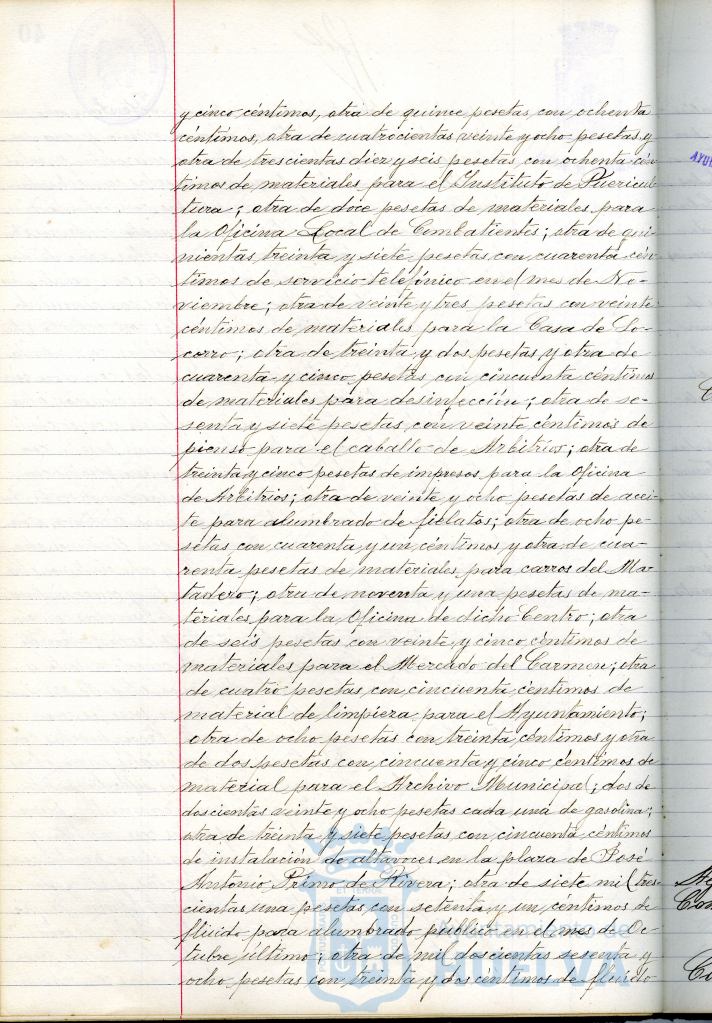 y cinco céntimos, otra de quince pesetas, con ochenta
céntimos, otra de cuatrocientas veinte y ocho pesetas y
otra de trescientas diez y seis pesetas con ochenta cén-
timos de materiales para el Instituto de Puericul-
tura; otra de doce pesetas de materiales para
la Oficina Local de Combatientes; otra de qui-
nientas treinta y siete pesetas con cuarenta cén-
timos de servicio telefónico en el mes de No-
viembre; otra de veinte y tres pesetas con veinte
céntimos de materiales para la Casa de So-
corro; otra de treinta y dos pesetas y otra de
cuarenta y cinco pesetas con cincuenta céntimos
de materiales para desinfección; otra de se-
senta y siete pesetas, con veinte céntimos de
pienso para el caballo de Arbitrios; otra de
treinta y cinco pesetas de impresos para la Oficina
de Arbitrios; otra de veinte y ocho pesetas de acei-
te para alumbrado de fielatos; otra de ocho pe-
setas con cuarenta y un céntimos y otra de cua-
renta pesetas de materiales para carros del Ma-
tadero; otra de noventa y una pesetas de ma-
teriales para la Oficina de dicho Centro; otra
de seis pesetas con veinte y cinco céntimos de
materiales para el Mercado del Carmen; otra
de cuatro pesetas con cincuenta céntimos de
material de limpieza para el Ayuntamiento;
otra de ocho pesetas con treinta céntimos y otra
de dos pesetas con cincuenta y cinco céntimos de
material para el Archivo Municipal; dos de
doscientas veinte y ocho pesetas cada una de gasolina;
otra de treinta y siete pesetas con cincuenta céntimos
de instalación de altavoces en la plaza de José
Antonio Primo de Rivera; otra de siete mil tres-
cientas una pesetas con setenta y un céntimos de
flúido para alumbrado público en el mes de Oc-
tubre último; otra de mil doscientas sesenta y
ocho pesetas con treinta y dos céntimos de flúido
Ayuntamiento de
HUELVA